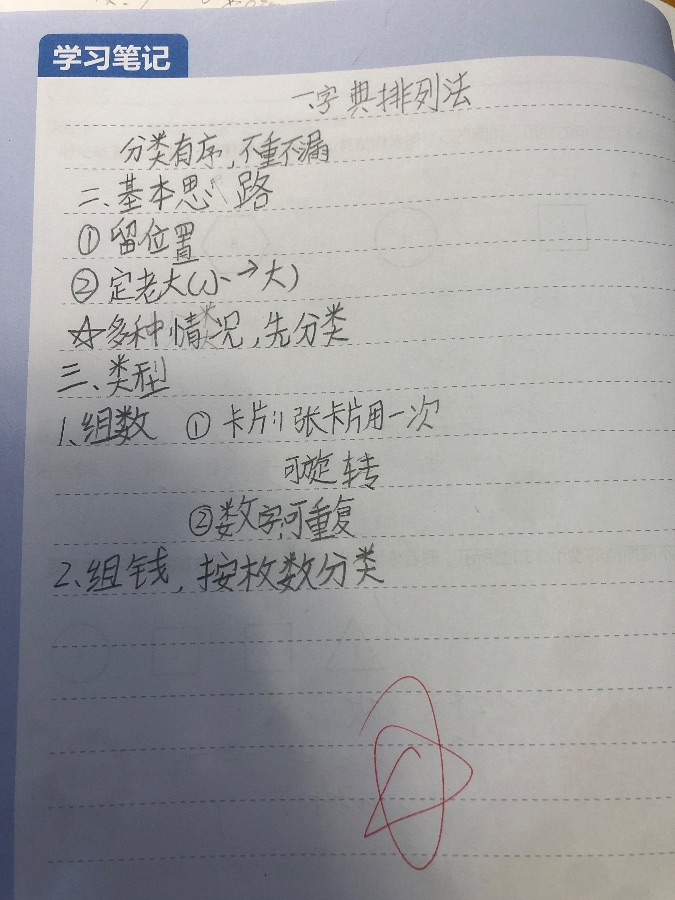 学习笔记
一、字典排列法
分类有序，不重不漏
二、基本思路
①留位置
②定老大(小→大)
☆多种情况，先分类
三、类型
1、组数 ①卡片:1张卡片用一次
可旋转
②数字可重复
2、组钱，按枚数分类